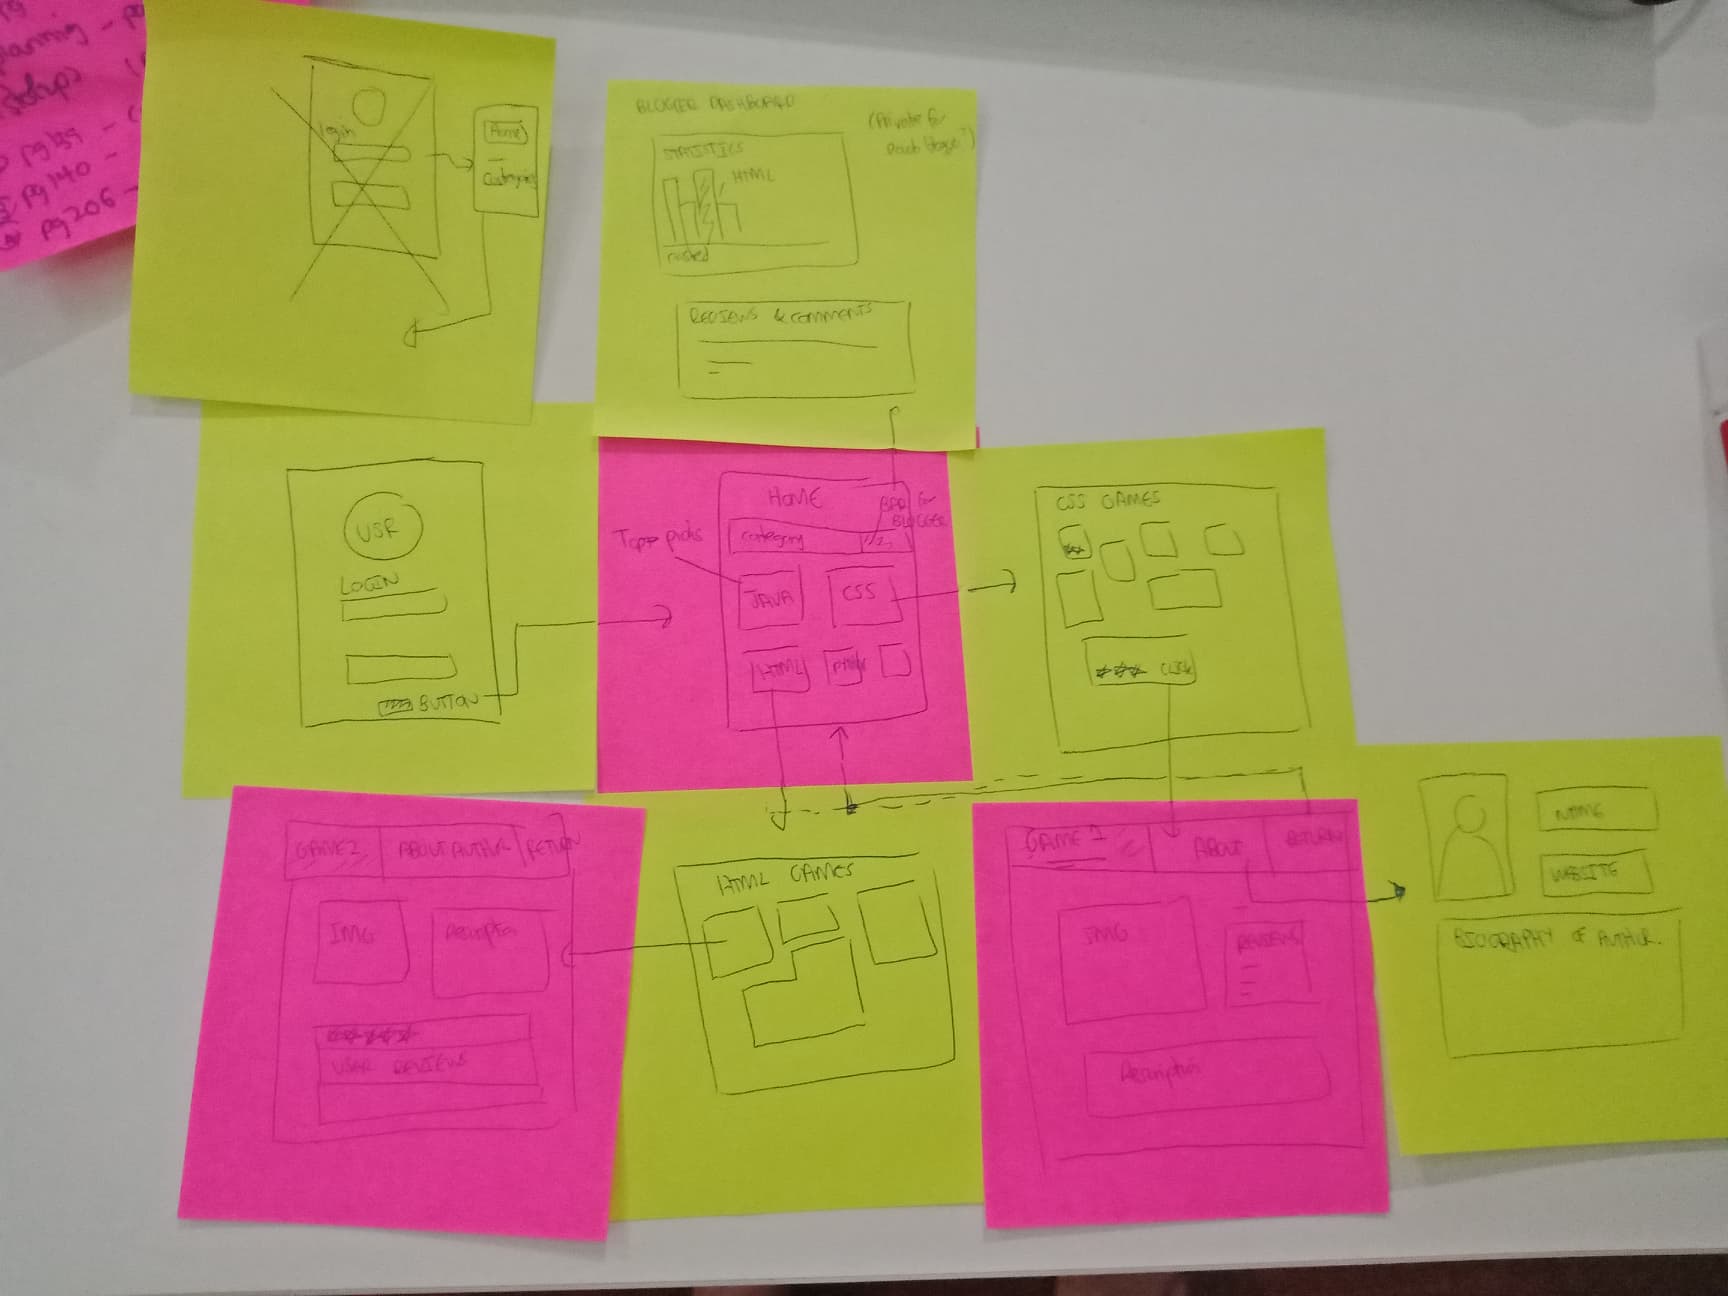 planning -
pg 139 -
pg 140 -
pg 206 -
login
Home
BLOGGER DASHBOARD
(Private for
each
STATISTICS
HTML
REVIEWS & comments
USR
LOGIN
BUTTON
HOME
BLOGGER
Top picks
category
JAVA
CSS
HTML
CSS GAMES
CLICK
GAME 2
ABOUT AUTHOR
RETURN
IMG
USER REVIEWS
HTML GAMES
GAME 1
ABOUT
RETURN
IMG
REVIEWS
Description
NAME
WEBSITE
BIOGRAPHY OF AUTHOR.